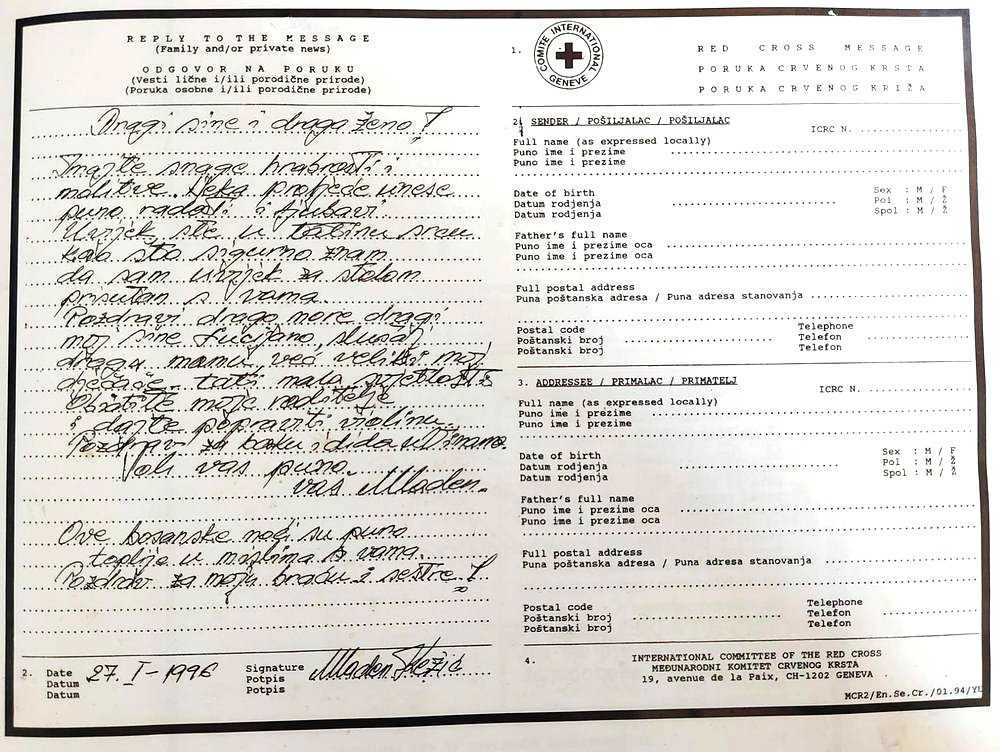 REPLY TO THE MESSAGE
(Family and/or private news)
ODGOVOR NA PORUKU
(Vesti lične i/ili porodične prirode)
(Poruka osobne i/ili porodične prirode)
Dragi sine i draga ženo!
Imajte snage hrabrosti i
molitve. Neka proljeće unese
puno radosti i ljubavi.
Uvijek ste u tatinu srcu
kao što sigurno znam
da sam uvijek za stolom
prisutan s vama.
Pozdravi drago more dragi
moj sine Lucijano, slušaj
dragu mamu, već veliki moj
dječače. tati mala svjetlosti
Obiđite moje roditelje
i dajte popraviti violinu.
Pozdravi za baku i dida u
Voli vas puno.
vaš Mladen.
Ove bosanske noći su puno
toplije u mislima s vama.
Pozdravi za moju braću i sestre!
2. Date
Datum
Datum
27. I - 1996
Signature
Potpis
Potpis
Mladen
1.
COMITE INTERNATIONAL GENEVE
RED CROSS MESSAGE
PORUKA CRVENOG KRSTA
PORUKA CRVENOG KRIŽA
2. SENDER / POŠILJALAC / POŠILJALAC
ICRC N.
Full name (as expressed locally)
Puno ime i prezime
Puno ime i prezime
Date of birth
Datum rodjenja
Datum rodjenja
Sex : M / F
Pol : M / Ž
Spol : M / Ž
Father's full name
Puno ime i prezime oca
Puno ime i prezime oca
Full postal address
Puna poštanska adresa / Puna adresa stanovanja
Postal code
Poštanski broj
Poštanski broj
Telephone
Telefon
Telefon
3. ADDRESSEE / PRIMALAC / PRIMATELJ
ICRC N.
Full name (as expressed locally)
Puno ime i prezime
Puno ime i prezime
Date of birth
Datum rodjenja
Datum rodjenja
Sex : M / F
Pol : M / Ž
Spol : M / Ž
Father's full name
Puno ime i prezime oca
Puno ime i prezime oca
Full postal address
Puna poštanska adresa / Puna adresa stanovanja
Postal code
Poštanski broj
Poštanski broj
Telephone
Telefon
Telefon
4.
INTERNATIONAL COMMITTEE OF THE RED CROSS
MEĐUNARODNI KOMITET CRVENOG KRSTA
19, avenue de la Paix, CH-1202 GENEVA
MCR2/En.Se.Cr./01.94/YL